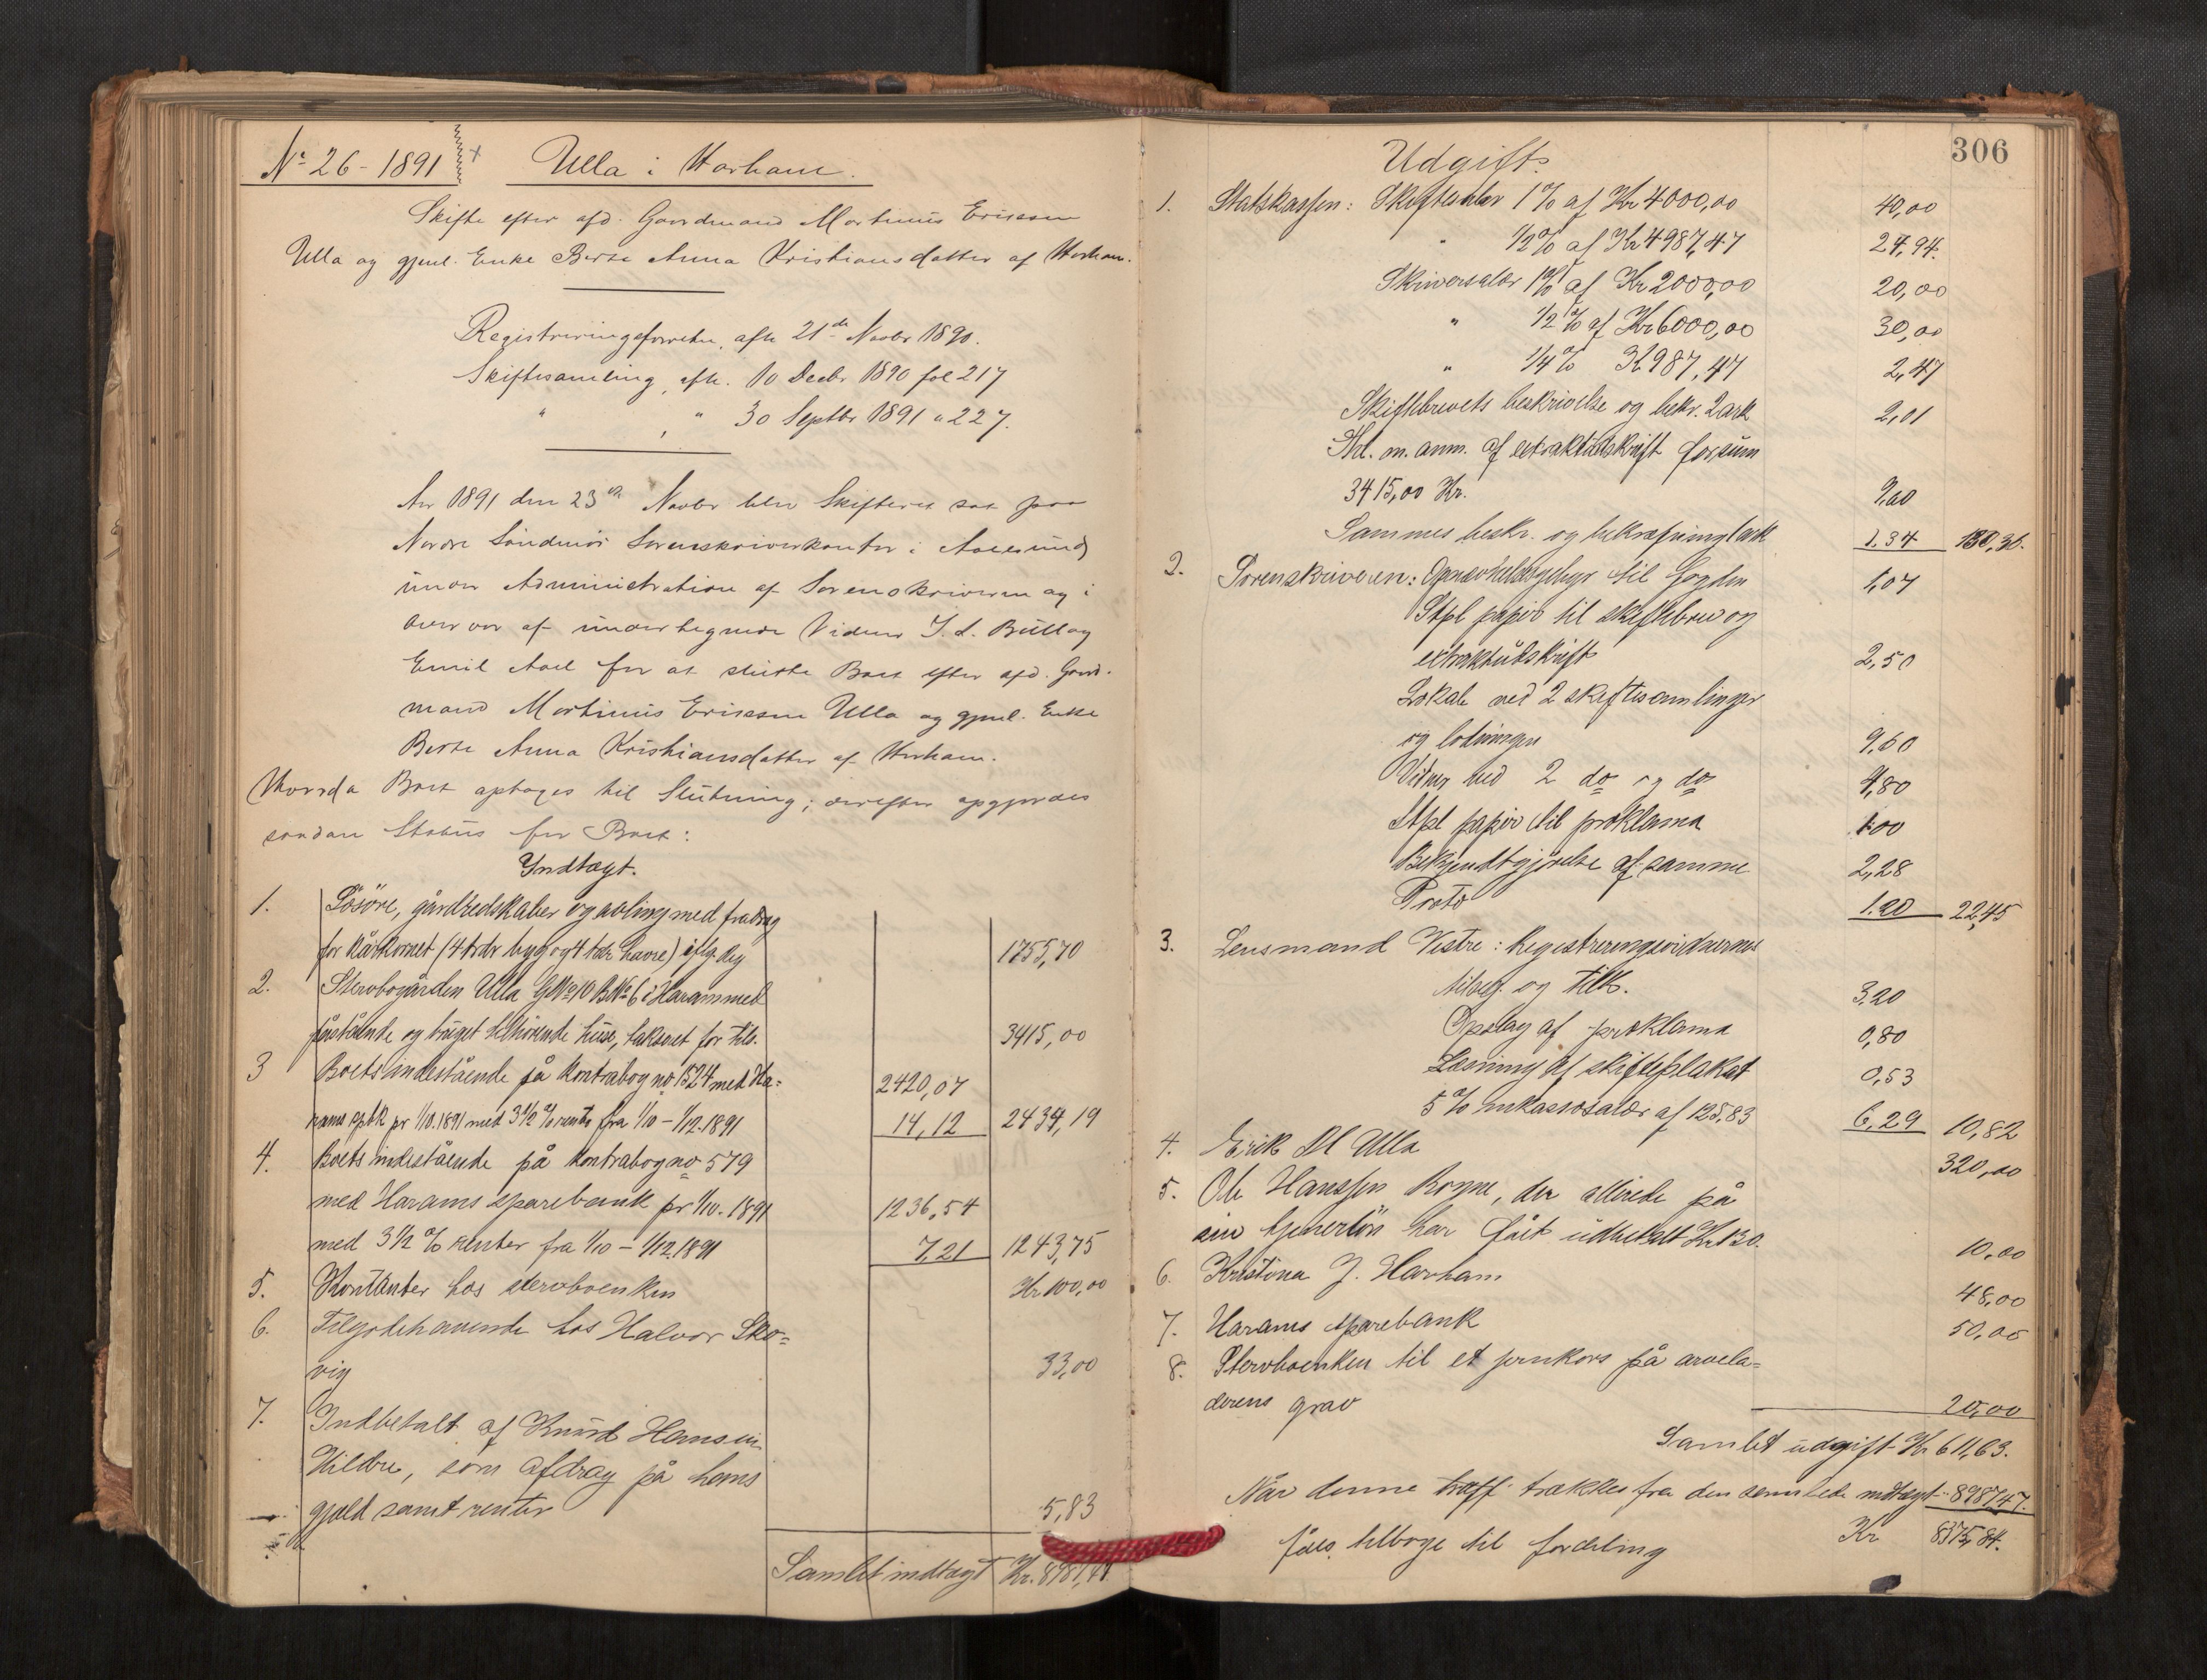 No 26 - 1891
Ulla i Harham.
Skifte efter afd. Gaardmand Martinus Eriksen
Ulla og gjenl. Enke Berte Anna Kristiansdatter af Harham.
Registreringsforretn. afh. 21de Novbr 1890.
Skiftesamling afh. 10 Decbr 1890 fol 217
" " 30 Septbr 1891 " 227.
Aar 1891 den 23de Novbr blev Skifteret sat paa
Nordre Söndmör Sorenskriverkontor i Aalesund
under Administration af Sorenskriveren og i
Overvær af undertegnede Vidner J. L. Bull og
Emil Aael for at slutte Boet efter afd. Gaard-
mand Martinus Eriksen Ulla og gjenl. Enke
Berte Anna Kristiansdatter af Harham.
Hvorda Boet optoges til Slutning; derefter opgjordes
saadan Status for Boet:
Indtægt.
1. Lösöre, gårdredskaber og avling med fradrag
for kårkornet (4 tdr byg og 4 tdr havre) iflg. Reg 1755,70
2. Stervbogården Ulla GNo 10 BNo 6 i Haram med
påstående og bruget tilhörende huse, taksert for tils. 3415,00
3 Boets indestående på kontrabog no 1524 med Ha= 2420,07
rams spbk pr 1/10.1891 med 3 1/2 % rente fra 1/10 - 1/12.1891 14,12 2434,19
4. Boets indestående på kontrabog no 579
med Harams sparebank pr 1/10. 1891 1236,54
med 3 1/2 % renter fra 1/10 - 1/12.1891 7,21 1243,75
5. Kontanter hos stervboenken Kr 100,00
6. Tilgodehavende hos Halvor Sko=
vig 33,00
7. Indbetalt af Knud Hansen
Hildre, som afdrag på hans
gjæld samt renter 5,83
Samlet indtægt Kr. 8987,47
306
Udgift.
1. Statskassen: Skiftesalær 1 % af Kr 4000,00 40,00
" 1/2 % af Kr 4987,47 24,94.
Skriversalær 1 % af Kr 2000,00 20,00
" 1/2 % af Kr 6000,00 30,00
" 1/4 % Kr 987,47 2,47
Skiftebrevets beskrivelse og bekr. 2 ark 2,01
Thl. m. anm. af extraktudskrift for sum
3415,00 Kr. 9,60
Sammes beskr. og bekræftning 1 ark 1.34 130,36.
2. Sorenskriveren: Opnævnelsesgebyr til fogden 1,07
Stpl papir til skiftebrev og
extraktudskrift 2,50
Lokale ved 2 skiftesamlinger
og lodningen 9,60
Vidner ved 2 do og do 4,80
Stpl papir til proklama 1.00
Bekjendtgjörelse af samme 2,28
Proto 1.20 22,45
3. Lensmand Vestre: Registreringsvidnernes
tilsig. og tilk. 3,20
Opslag af proklama 0,80
Læsning af skifteplakat 0,53
5 % inkassosalær af 125,83 6,29 10,82
4. Erik M Ulla 320,00
5. Ole Hanssen Rogne, der allerede på
sin tjenerlön har fåit udbetalt Kr 130. 10,00
6. Kristina J. Harham 48,00
7. Harams sparebank 50,00
8. Stervboenken til et jernkors på arvela=
derens grav 20,00
Samlet udgift Kr 611,63.
Når denne trækkes fra den samlede indtægt 8987,47.
fåes tilbage til fordeling Kr 8375,84.